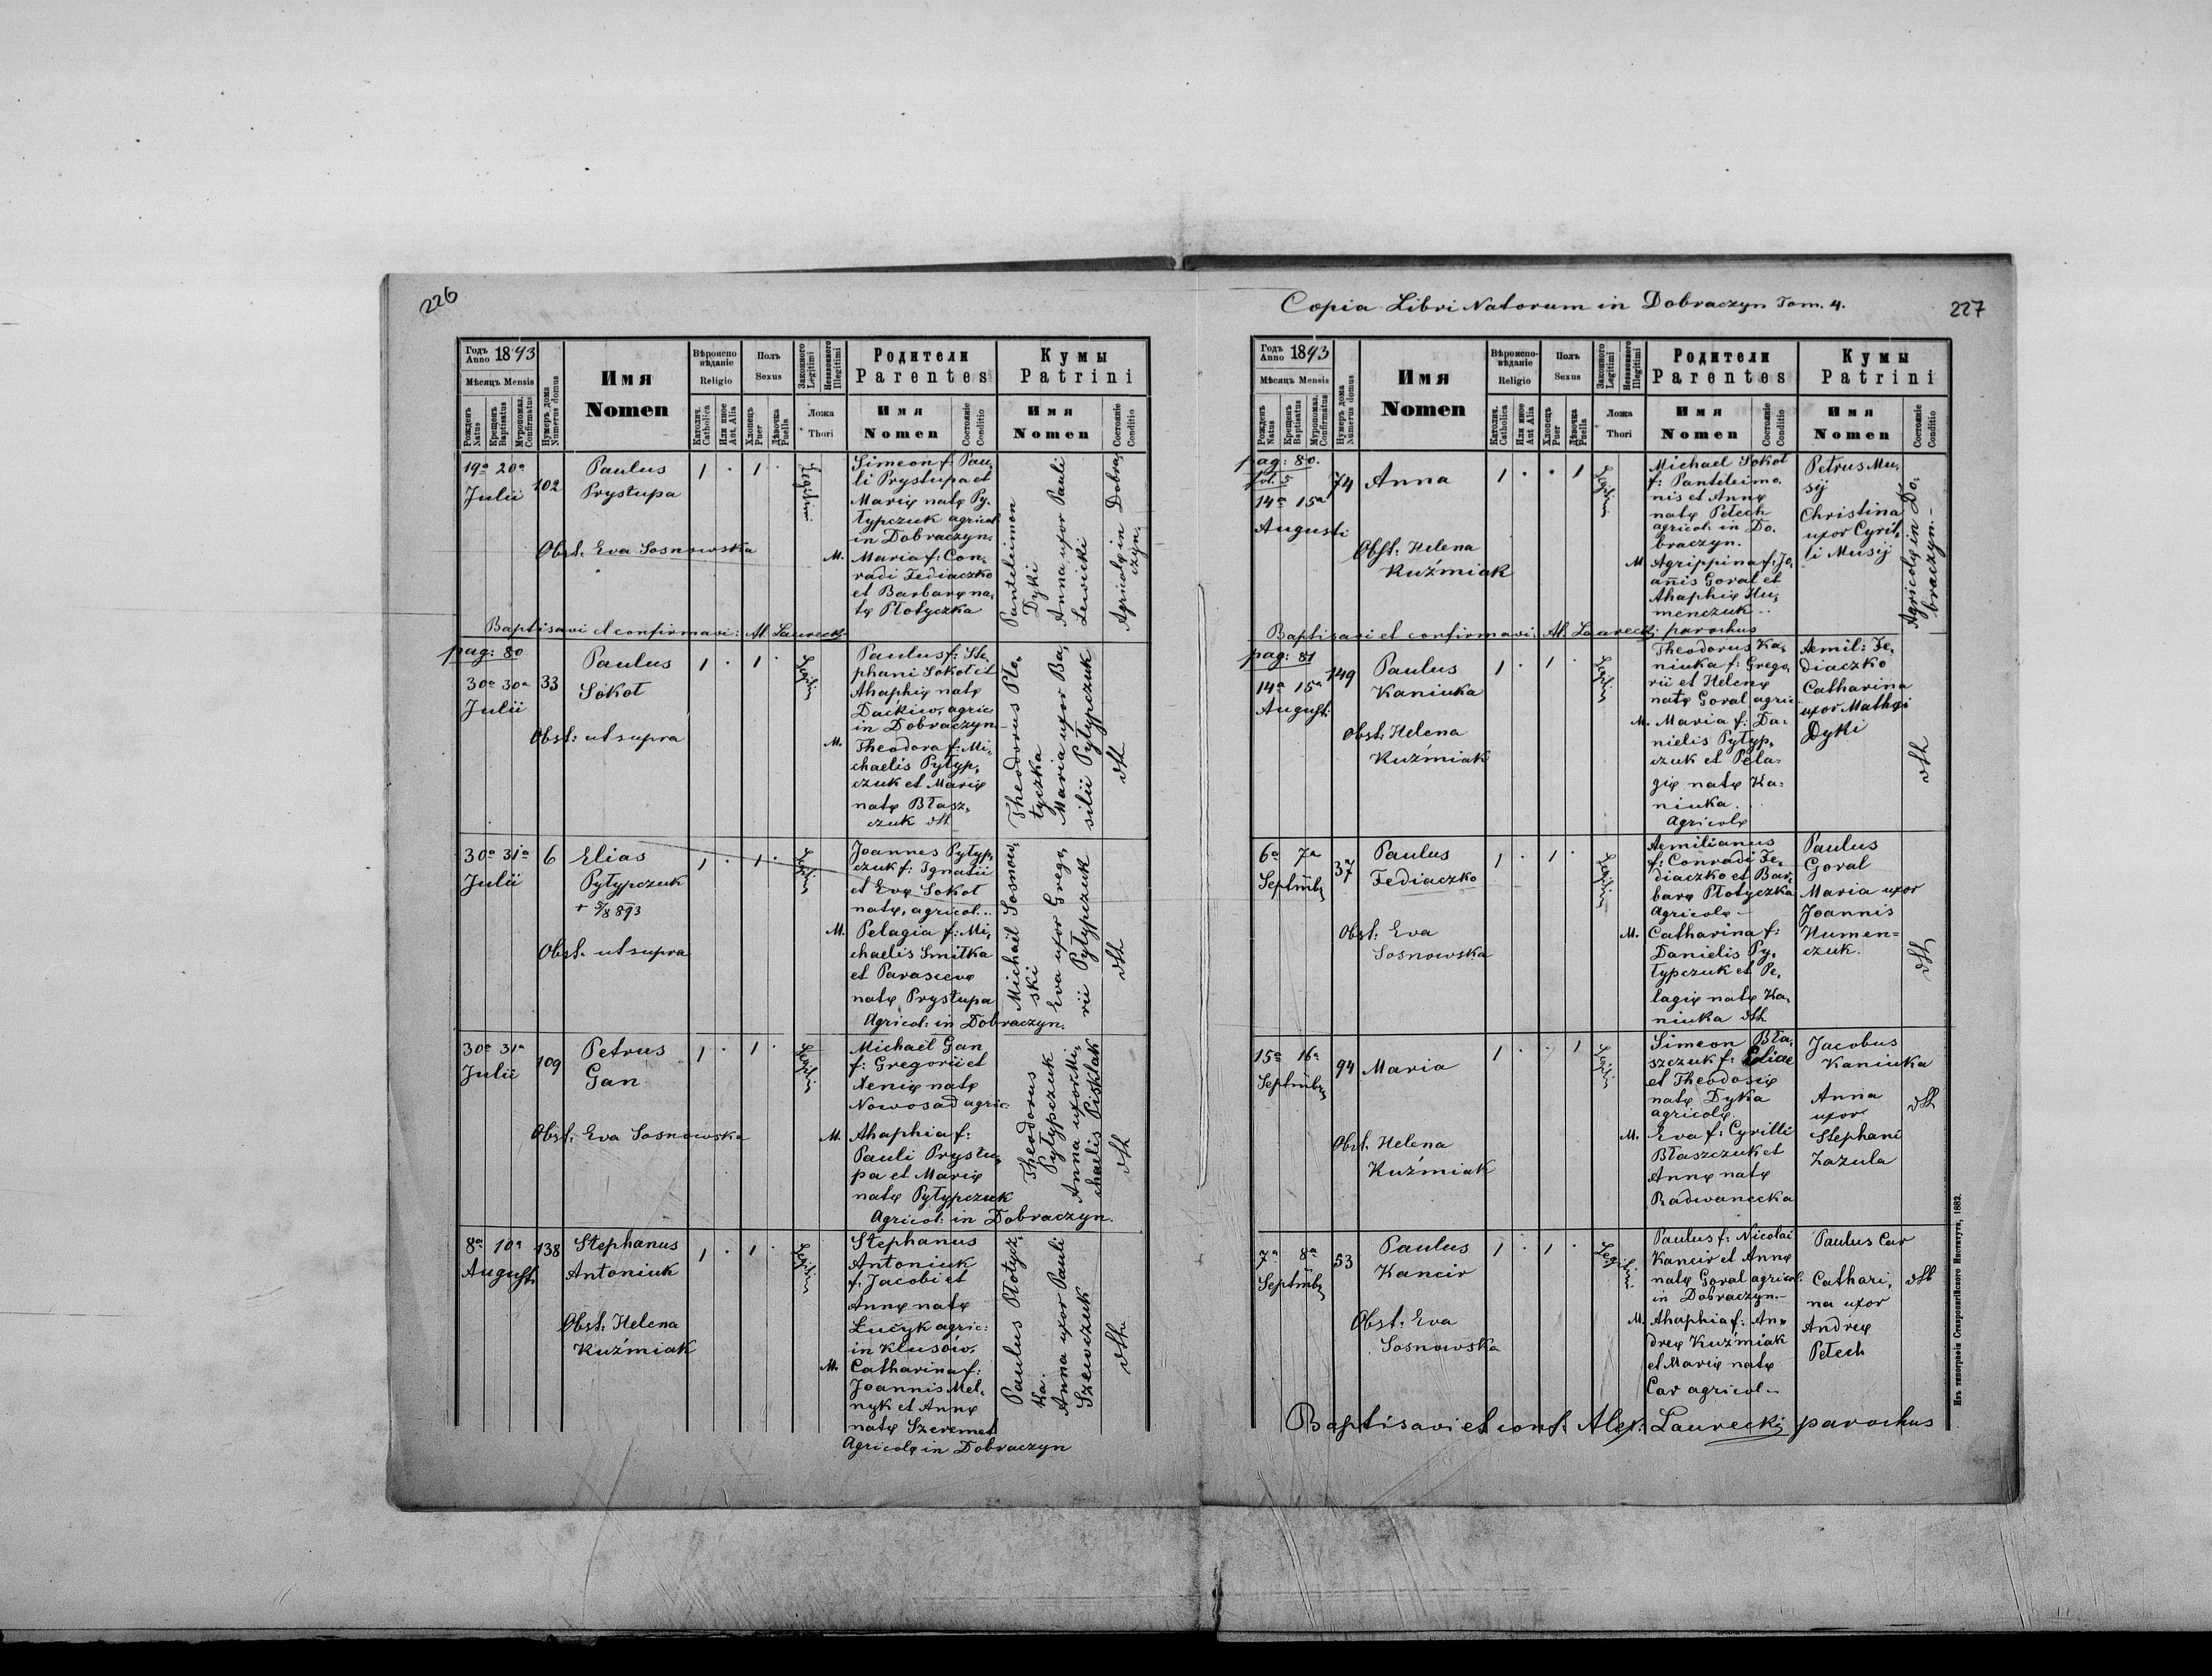 226
Годъ Anno 1893
Мѣсяцъ Mensis
Рожденъ Natus
Крещенъ Baptisatus
Мѵропомаз. Confirmatus
Нумеръ дома Numerus domus
Имя
Nomen
Вѣроиспо-
вѣданіе
Religio
Католич. Catholica
Или иное Aut. Alia
Полъ
Sexus
Хлопецъ Puer
Дѣвочка Puella
Законного Legitimi
Незаконного Illegitimi
Ложа
Thori
Родители
Parentes
Имя
Nomen
Состояніе Conditio
Кумы
Patrini
Имя
Nomen
Состояніе Conditio
19a 20a
Julii
102
Paulus
Prystupa
1 . 1 .
Legitimi
Obst. Eva Sosnowska
Simeon f: Pau,
li Prystupa et
Marię natę Py,
łypczuk agricol
in Dobraczyn.
M. Maria f: Con,
radi Fediaczko
et Barbarę na,
tę Płotyczka
Panteleimon
Dyki
Anna uxor Pauli
Lewicki
Agricolę in Dobra,
czyn.
Baptisavi et confirmavi: Al. Laurecki
pag: 80
30a 30a
Julii
33
Paulus
Sokoł
1 . 1 .
Legitim
Obst: ut supra
Paulus f: Ste,
phani Sokoł et
Ahaphię natę
Daćkiw, agric
in Dobraczyn.
M. Theodora f: Mi,
chaelis Pyłyp,
czuk et Marię
natę Błasz,
czuk dtt
Theodorus Pło,
tyczka
Maria uxor Ba,
silii Pyłypczuk
dtt
30a 31a
Julii
6
Elias
Pyłypczuk
+ 5/8 893
1 . 1 .
Legitim
Obst. ut supra
Joannes Pyłyp,
czuk f: Ignatii
et Evę Sokoł
natę, agricol..
M. Pelagia f: Mi,
chaelis Smitka
et Parascevę
natę Prystupa
Agricol: in Dobraczyn.
Michaël Sosnow,
ski
Eva uxor Grego,
rii Pyłypczuk
dtt
30a 31a
Julii
109
Petrus
Gan
1 . 1 .
Legitim
Obst: Eva Sosnowska
Michaël Gan
f: Gregorii et
Xenię natę
Nowosad agric:
M. Ahaphia f:
Pauli Prystu,
pa et Marię
natę Pyłypczuk
Agricol: in Dobraczyn.
Theodorus
Pyłypczuk
Anna uxor Mi,
chaelis Pisklak
dtt
8a 10a
August.
138
Stephanus
Antoniuk
1 . 1 .
Legitim
Obst: Helena
Kuźmiak
Stephanus
Antoniuk
f: Jacobi et
Annę natę
Łučyk agric:
in Klusów.
M. Catharina f:
Joannis Mel,
nyk et Annę
natę Szeremet
Agricolę in Dobraczyn
Paulus Płotycz,
ka.
Anna uxor Pauli
Szewczuk
dtt
Copia Libri Natorum in Dobraczyn Tom. 4.
227
Годъ Anno 1893
Мѣсяцъ Mensis
Рожденъ Natus
Крещенъ Baptisatus
Мѵропомаз. Confirmatus
Нумеръ дома Numerus domus
Имя
Nomen
Вѣроиспо-
вѣданіе
Religio
Католич. Catholica
Или иное Aut. Alia
Полъ
Sexus
Хлопецъ Puer
Дѣвочка Puella
Законного Legitimi
Незаконного Illegitimi
Ложа
Thori
Родители
Parentes
Имя
Nomen
Состояніе Conditio
Кумы
Patrini
Имя
Nomen
Состояніе Conditio
pag: 80.
fol. 5
14a 15a
Augusti
74
Anna
1 . . 1
Legitim
Obst: Helena
Kuźmiak
Michael Sokoł
f: Panteleimo,
nis et Annę
natę Pełech
agricol: in Do,
braczyn.
M Agrippina f: Jo,
annis Goral et
Ahaphię Hu,
menczuk ..
Petrus Mu,
sij
Christina
uxor Cyril,
li Musij
Agricolę in Do,
braczyn.-
Baptisavi et confirmavi: Al. Laurecki parochus
pag: 81
14a 15a
August:
149
Paulus
Kaniuka
1 . 1 .
Legitim
Obst: Helena
Kuźmiak
Theodorus Ka,
niuka f: Grego,
rii et Helenę
natę Goral agric
M. Maria f: Da,
nielis Pyłyp,
czuk et Pela-
gię natę Ka=
niuka.
Agricolę
Aemil: Fe,
diaczko
Catharina
uxor Mathęi
Dyki
dtt
6a 7a
Septmb
37
Paulus
Fediaczko
1 . 1 .
Legitim
Obst. Eva
Sosnowska
Aemilianus
f: Conradi Fe,
diaczko et Bar,
barę Płotyczka
Agricolę -
M. Catharina f:
Danielis Py,
łypczuk et Pe,
lagię natę Ka,
niuka dtt
Paulus
Goral
Maria uxor
Joannis
Humen=
czuk.
dtt
15a 16a
Septmb
94
Maria
1 . . 1
Legitim
Obst. Helena
Kuźmiak
Simeon Bła,
szczuk f: Eliae
et Theodosię
natę Dyka
agricolę.
M. Eva f: Cyrilli
Błaszczuk et
Annę natę
Radwanecka
Jacobus
Kaniuka
Anna
uxor
Stephani
Zazula
dtt
7a 8a
Septmb
53
Paulus
Kancir
1 . 1 .
Legitimi
Obst. Eva
Sosnowska
Paulus f: Nicolai
Kancir et Annę
natę Goral agricol.
in Dobraczyn.-
M. Ahaphia f: An,
dreę Kuźmiak
et Marię natę
Car agricol-
Paulus Car
Cathari,
na uxor
Andreę
Pełech
dtt
Baptisavi et conf. Alex: Laurecki parochus
Изъ типографіи Ставропигійского Института, 1882.